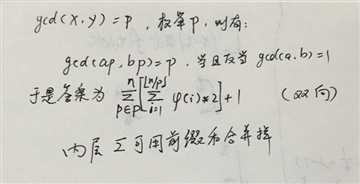 gcd(x,y)=p，枚举p，则有：
gcd(ap,bp)=p，当且仅当gcd(a,b)=1
于是答案为 \sum_{p∈P}^{n}[\sum_{i=1}^{⌊n/p⌋} φ(i)*2]+1 （双向）
内层Σ可用前缀和合并掉